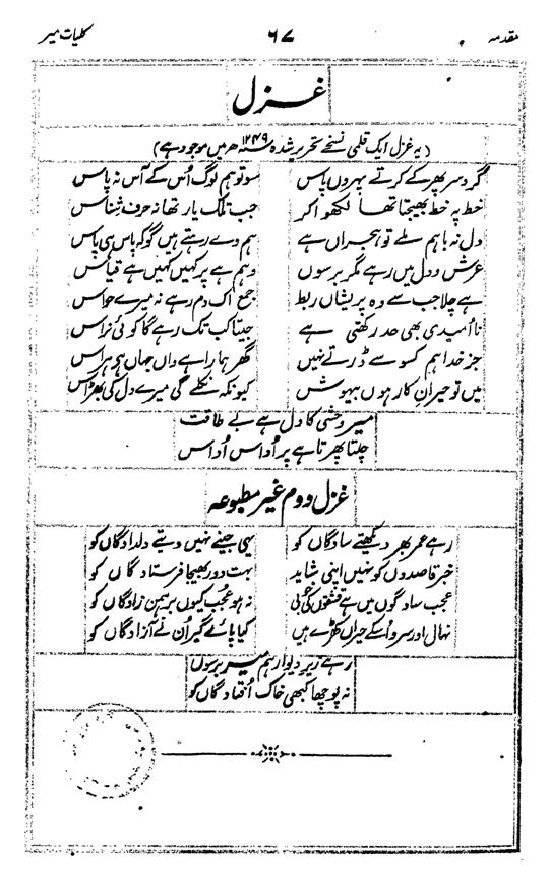 مقدمہ ۶۷ کلیات میر
غزل
(یہ غزل ایک قلمی نسخے تحریر شدہ ۱۲۴۹ھ میں موجود ہے)
گرد سر پھر کے کرتے پہروں پاس سو تو ہم لوگ اُس کے آس نہ پاس
خط پہ خط بھیجتا تھا لکھو اکر جب تلک یار تھا نہ حرف شناس
دل نہ باہم ملے تو ہجراں ہے ہم وے رہتے ہیں گو کہ پاس ہی پاس
عرش و دل میں رہے مگر برسوں وہم ہے پر کہیں کہیں ہے قیاس
ہے چلا جب سے وہ پریشاں ربط جمع اک دم رہے نہ میرے حواس
نا اُمیدی بھی حد رکھتی ہے جیتا کب تک رہے گا کوئی نراس
جز خدا ہم کسو سے ڈرتے نہیں گھر ہمارا ہے واں جہاں ہی ہراس
میں تو حیرانِ کار ہوں بیہوش کیونکہ نکلے گی میرے دل کی بھڑاس
میر وحشی کا دل ہے بے طاقت
چلتا پھرتا ہے پر اُداس اُداس
غزل دوم غیر مطبوعہ
رہے عمر بھر دیکھتے سادگاں کو یہی جینے نہیں دیتے دلدادگاں کو
خبر قاصدوں کو نہیں اپنی شاید بہت دور بھیجا فرستادگاں کو
عجب سادگوں میں ہے قشقوں کی خوبی نہ ہو عُجب کیوں برہمن زادگاں کو
نہال اور سرو اُسکے حیراں کھڑے ہیں کیا پائے گیر اُن نے آزادگاں کو
رہے زیر دیوار ہم میر برسوں
نہ پوچھا کبھی خاک اُفتادگاں کو